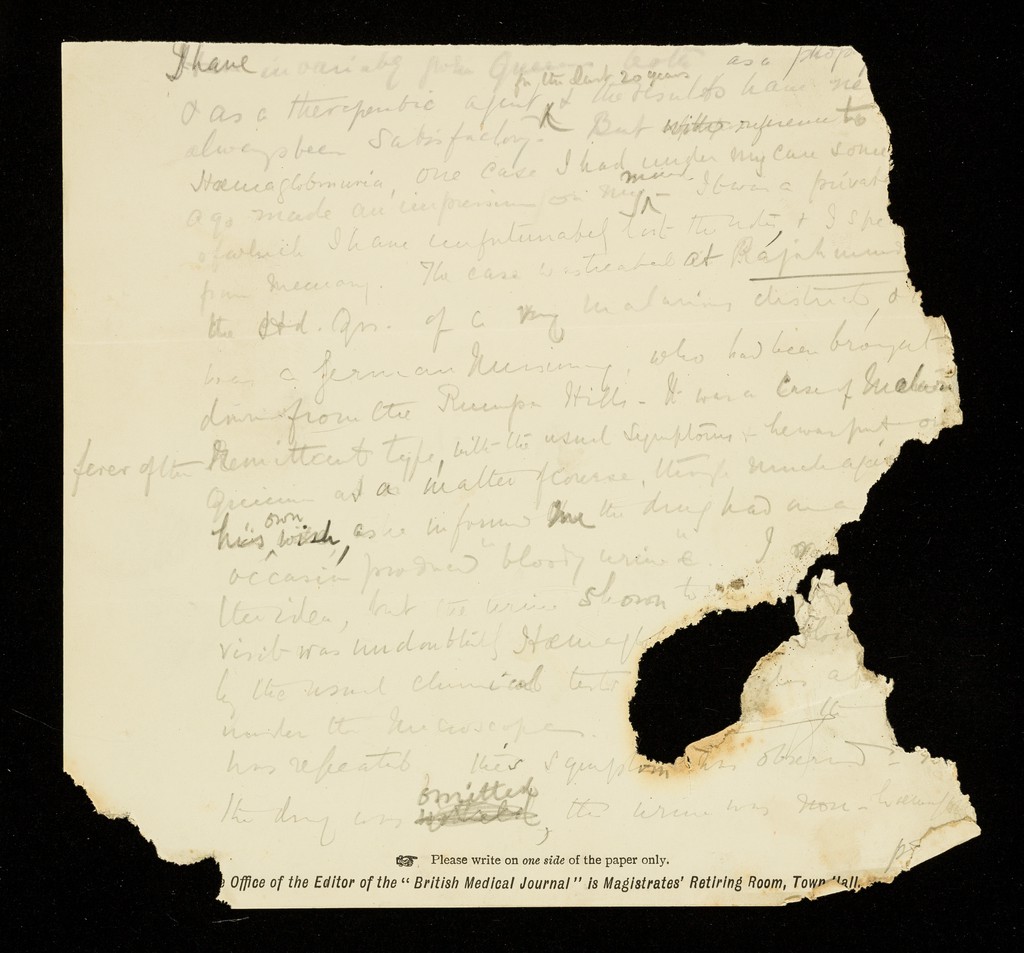 I have invariably given Quinine both as a prop
for the last 20 years
& as a therapeutic agent & the results have
always been satisfactory. But with reference to
Hæmaglobinuria, one case I had under my care some
ago made an impression on my mind. It was a private
of which I have unfortunately lost the notes, & I spe
from memory. The case was treated at Rajahmun
the Hd. Qrs. of a very malarious district, &
was a German Missionary, who had been brought
down from the Rumpa Hills - It was a case of Malari
fever of the Remittent type, with the usual symptoms & he was put on
Quinine as a matter of course, though much agai
his own wish, as he informed me the drug had on a
occasion produced "bloody urine". I
the idea, but the urine shown to
visit was undoubtedly Hæmagl
by the usual chemical tests
under the Microscope.
was repeated this symptom was observed -
the drug was omitted, the urine was non-hæmaglo
Please write on one side of the paper only.
Office of the Editor of the "British Medical Journal" is Magistrates' Retiring Room, Town Hall.